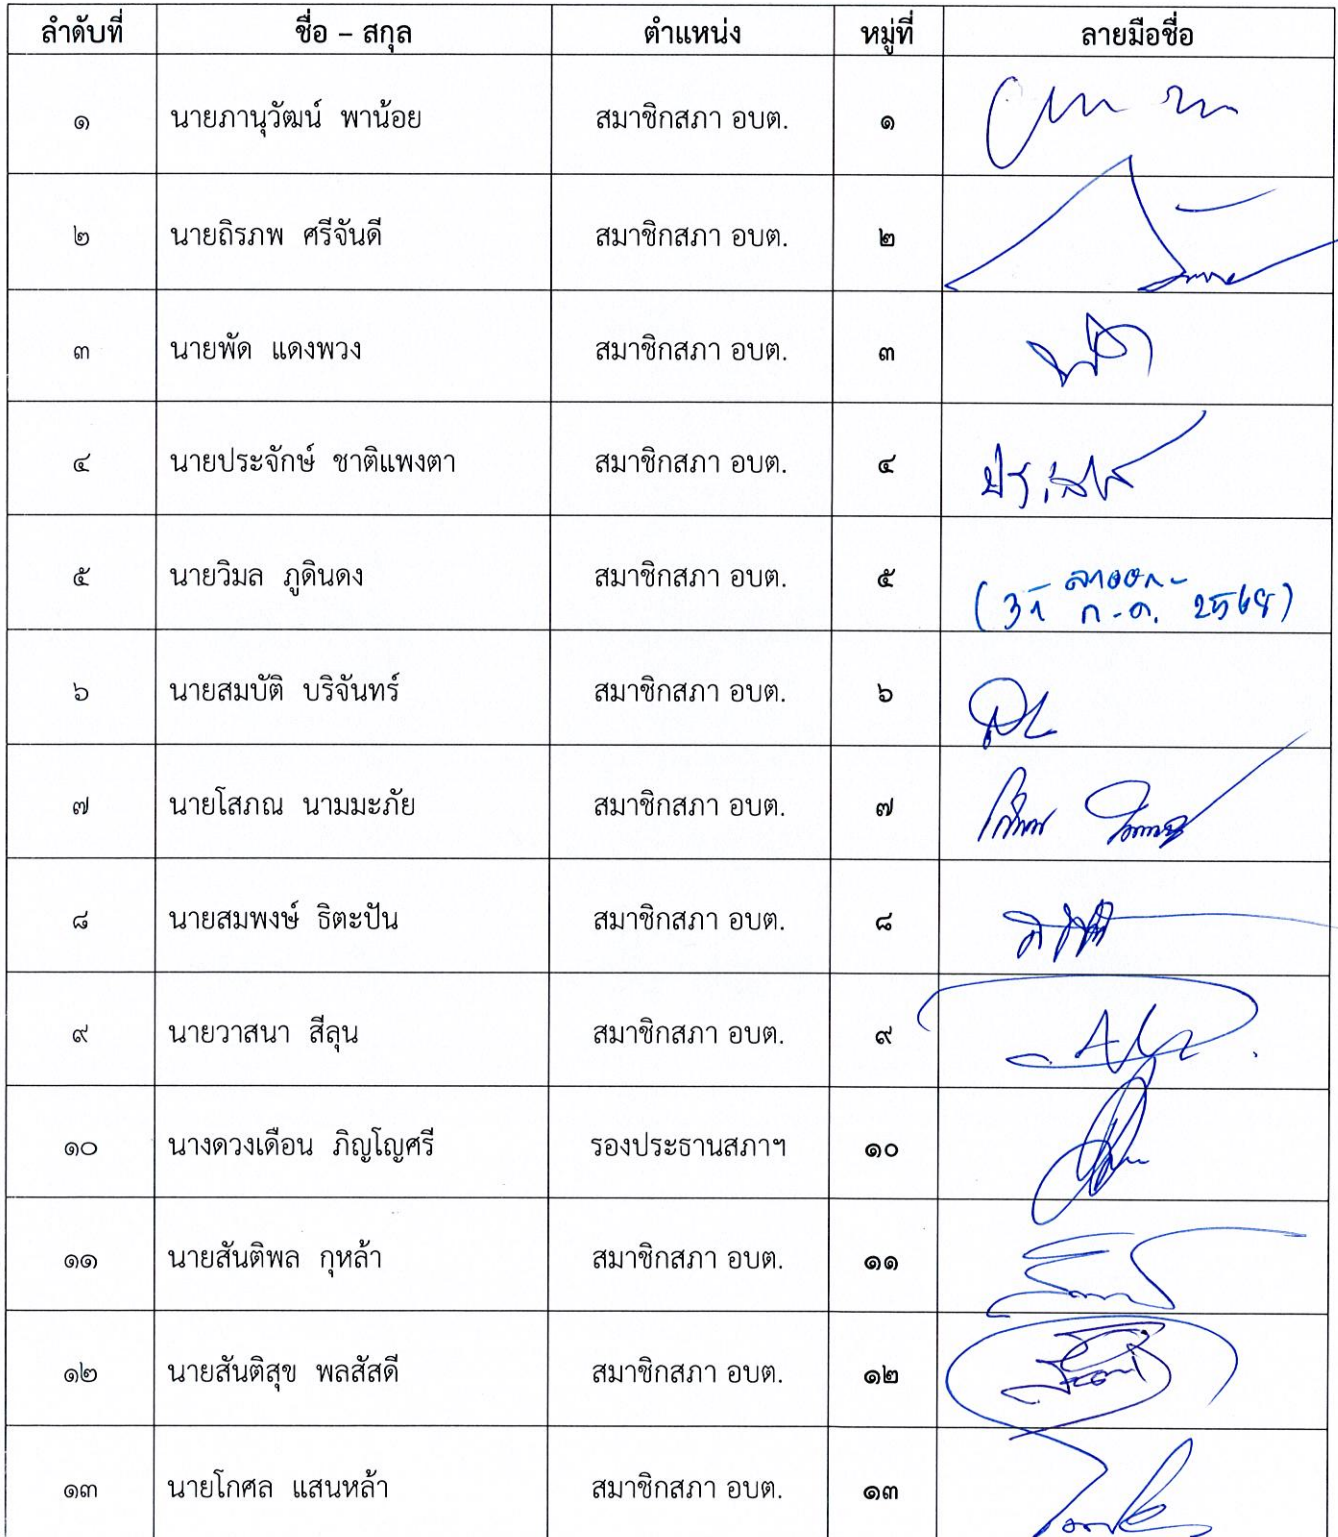 ลำดับที่ ชื่อ – สกุล ตำแหน่ง หมู่ที่ ลายมือชื่อ
๑ นายภานุวัฒน์ พาน้อย สมาชิกสภา อบต. ๑
๒ นายถิรภพ ศรีจันดี สมาชิกสภา อบต. ๒
๓ นายพัด แดงพวง สมาชิกสภา อบต. ๓
๔ นายประจักษ์ ชาติแพงตา สมาชิกสภา อบต. ๔
๕ นายวิมล ภูดินดง สมาชิกสภา อบต. ๕ ลาออก
ก.ค. 2568)
๖ นายสมบัติ บริจันทร์ สมาชิกสภา อบต. ๖
๗ นายโสภณ นามมะภัย สมาชิกสภา อบต. ๗
๘ นายสมพงษ์ ธิตะปัน สมาชิกสภา อบต. ๘
๙ นายวาสนา สีลุน สมาชิกสภา อบต. ๙
๑๐ นางดวงเดือน ภิญโญศรี รองประธานสภาฯ ๑๐
๑๑ นายสันติพล กุหล้า สมาชิกสภา อบต. ๑๑
๑๒ นายสันติสุข พลสัสดี สมาชิกสภา อบต. ๑๒
๑๓ นายโกศล แสนหล้า สมาชิกสภา อบต. ๑๓